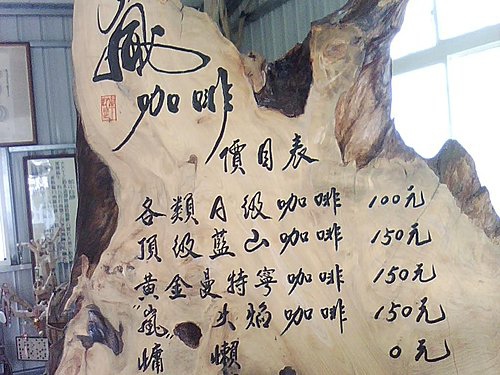 咖啡
價目表
各類A級咖啡 100元
頂級藍山咖啡 150元
黃金曼特寧咖啡 150元
"嵐"火焰咖啡 150元
慵懶 0元